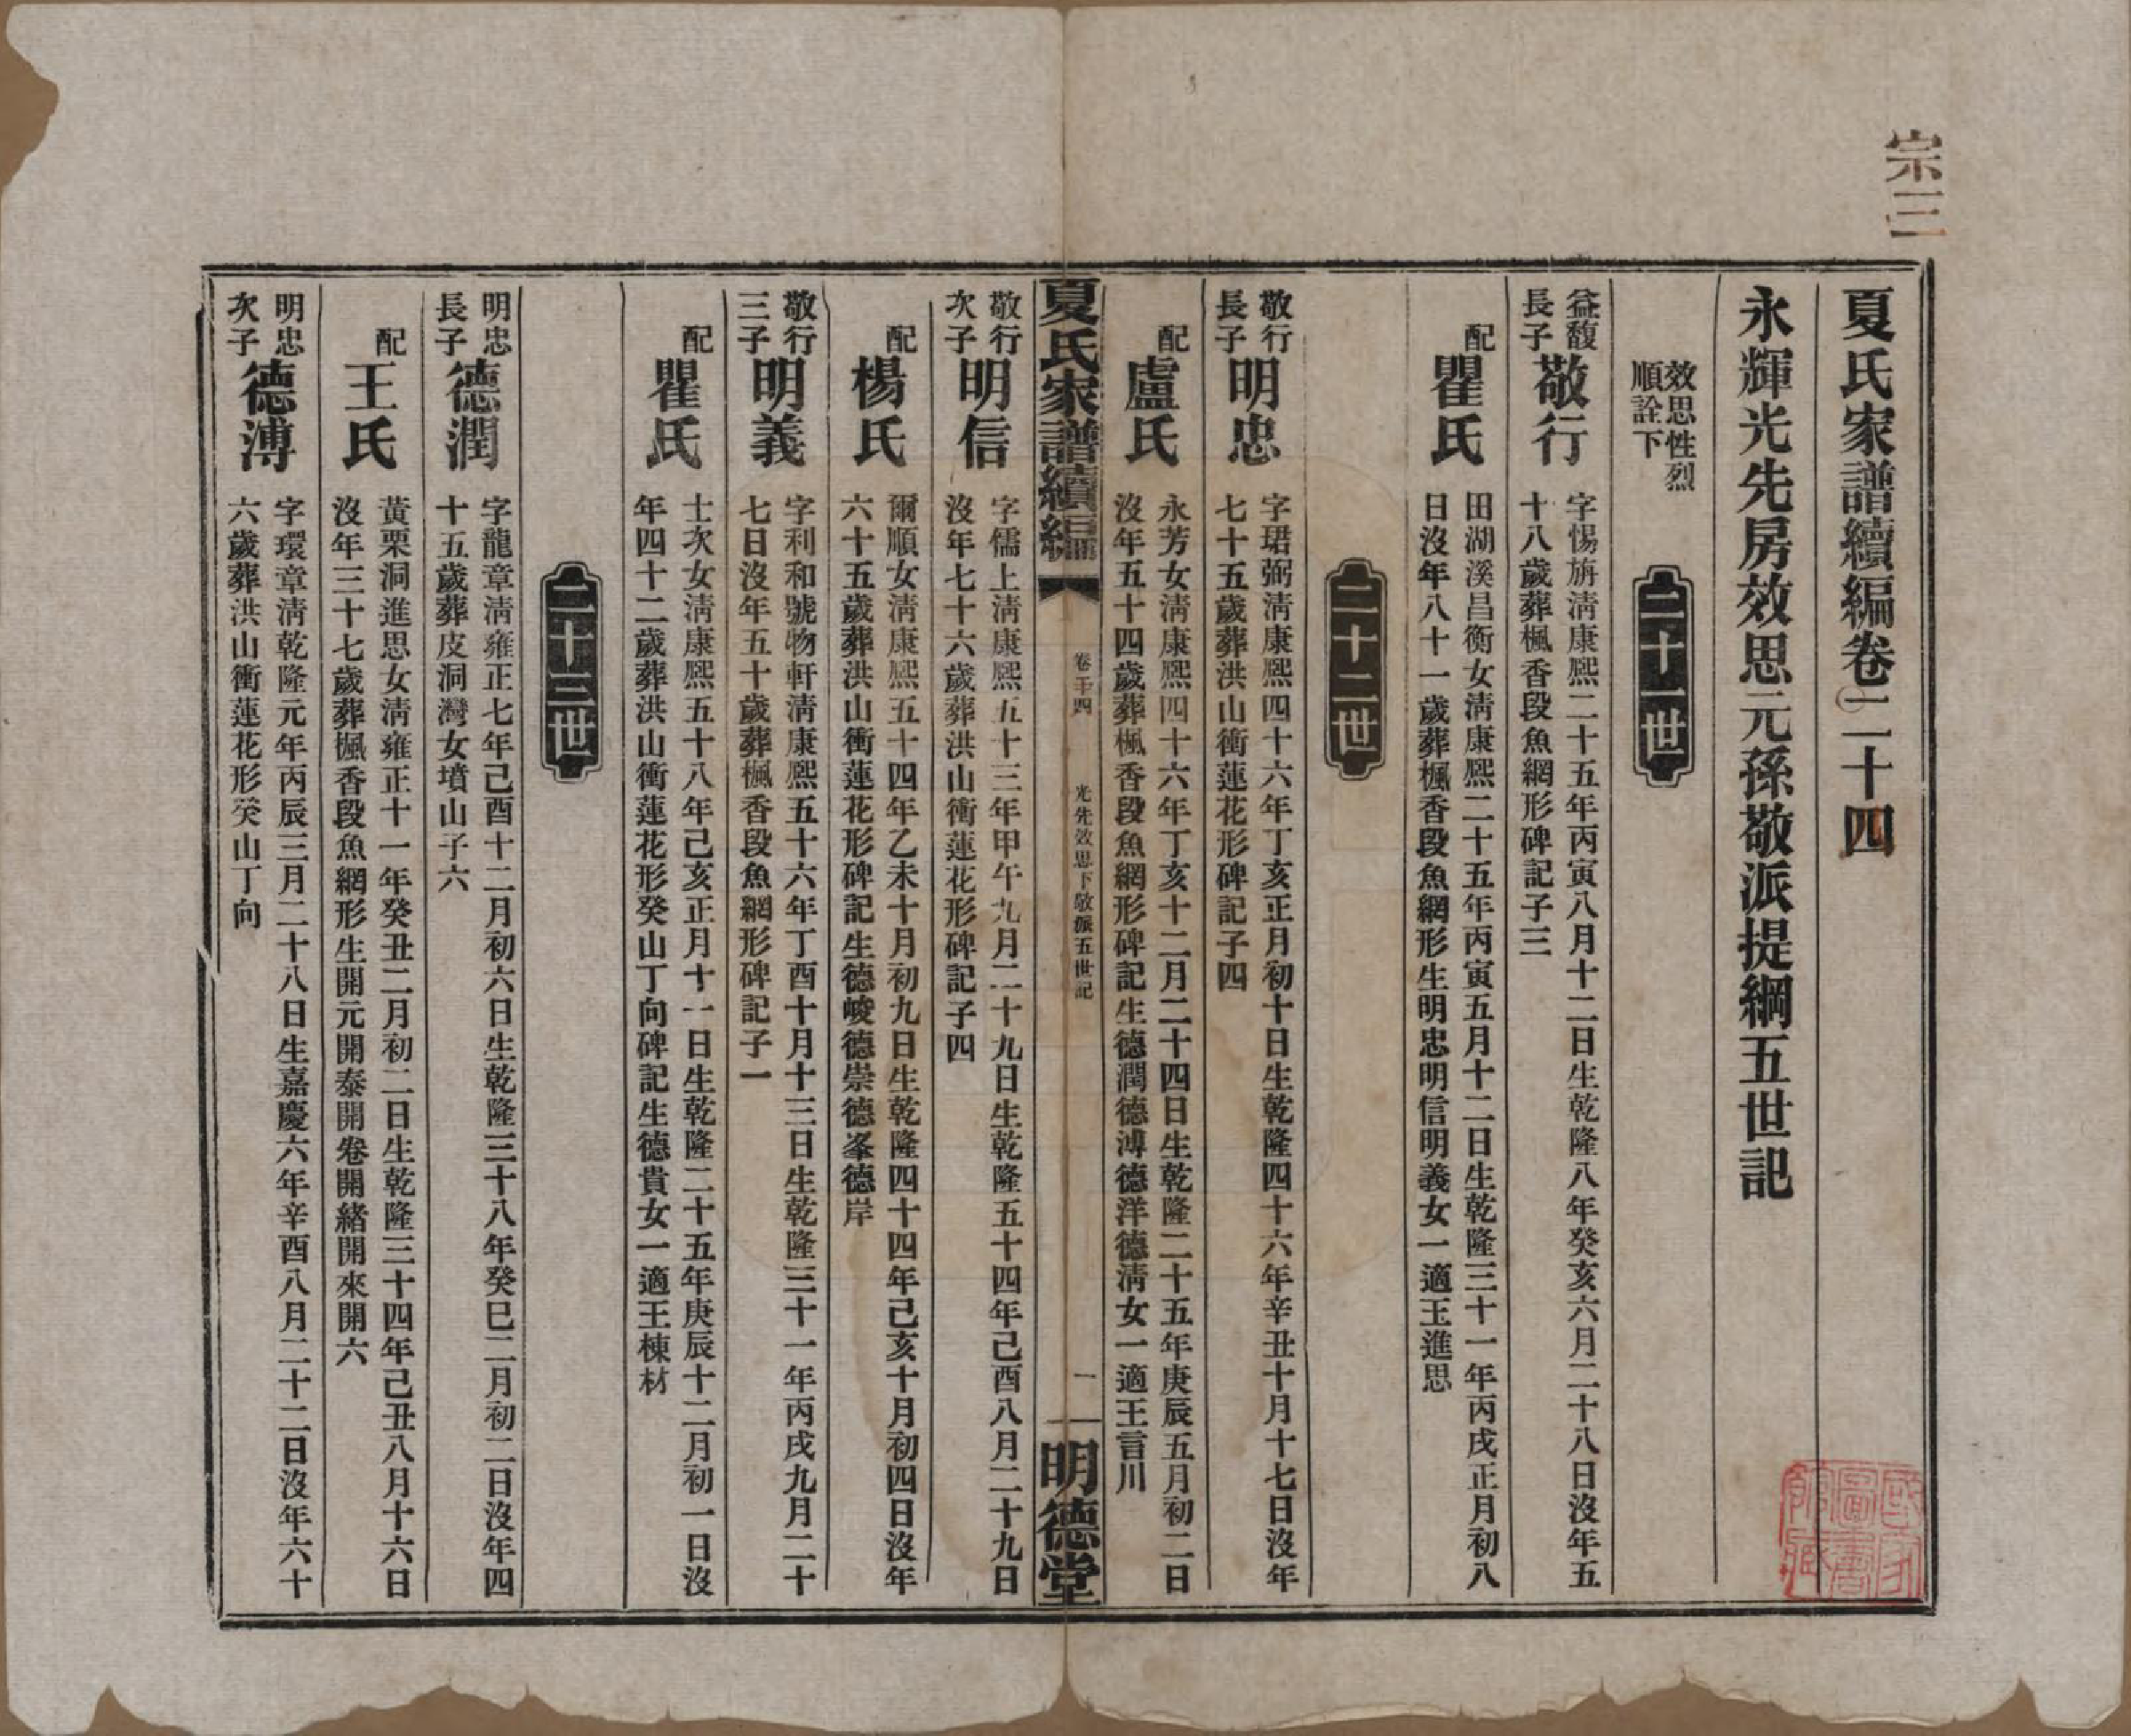 宗三
夏氏家譜續編卷二十四
永輝光先房效思元孫敬派提綱五世記
效思性烈
順詮下
二十一世
益馥
長子
敬行
字惕旃淸康熙二十五年丙寅八月十二日生乾隆八年癸亥六月二十八日沒年五
十八歲葬楓香段魚網形碑記子三
配
瞿氏
田湖溪昌衡女淸康熙二十五年丙寅五月十二日生乾隆三十一年丙戌正月初八
日沒年八十一歲葬楓香段魚網形生明忠明信明義女一適王進思
二十二世
敬行
長子
明忠
字珺弼淸康熙四十六年丁亥正月初十日生乾隆四十六年辛丑十月十七日沒年
七十五歲葬洪山衝蓮花形碑記子四
配
盧氏
永芳女淸康熙四十六年丁亥十二月二十四日生乾隆二十五年庚辰五月初二日
沒年五十四歲葬楓香段魚網形碑記生德潤德溥德洋德淸女一適王言川
夏氏家譜續編
卷二十四
光先效思下敬派五世記
一
明德堂
敬行
次子
明信
字儒上淸康熙五十三年甲午九月二十九日生乾隆五十四年己酉八月二十九日
沒年七十六歲葬洪山衝蓮花形碑記子四
配
楊氏
爾順女淸康熙五十四年乙未十月初九日生乾隆四十四年己亥十月初四日沒年
六十五歲葬洪山衝蓮花形碑記生德峻德崇德峯德岸
敬行
三子
明義
字利和號物軒淸康熙五十六年丁酉十月十三日生乾隆三十一年丙戌九月二十
七日沒年五十歲葬楓香段魚網形碑記子一
配
瞿氏
士次女淸康熙五十八年己亥正月十一日生乾隆二十五年庚辰十二月初一日沒
年四十二歲葬洪山衝蓮花形癸山丁向碑記生德貴女一適王棟材
二十三世
明忠
長子
德潤
字龍章淸雍正七年己酉十二月初六日生乾隆三十八年癸巳二月初二日沒年四
十五歲葬皮洞灣女墳山子六
配
王氏
黃栗洞進思女淸雍正十一年癸丑二月初二日生乾隆三十四年己丑八月十六日
沒年三十七歲葬楓香段魚網形生開元開泰開卷開緖開來開六
明忠
次子
德溥
字環章淸乾隆元年丙辰三月二十八日生嘉慶六年辛酉八月二十二日沒年六十
六歲葬洪山衝蓮花形癸山丁向
國家圖書館藏